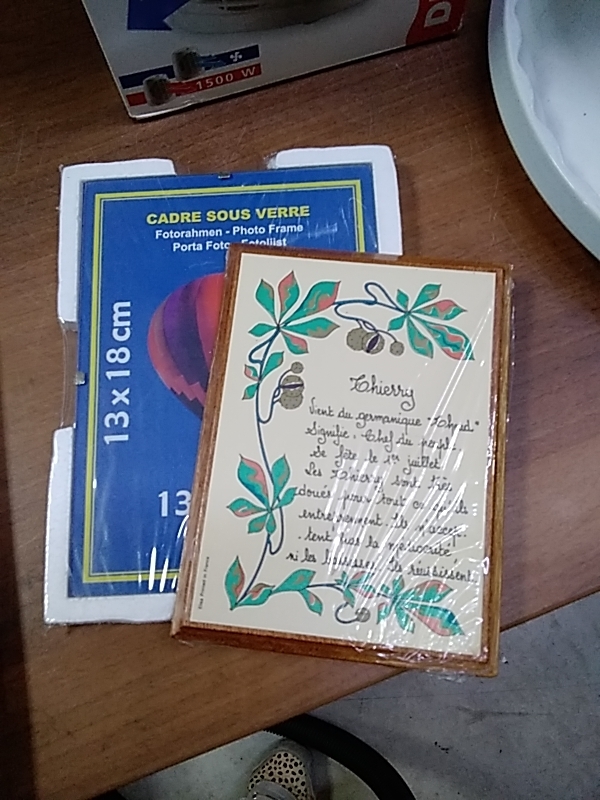 1500 W
D
CADRE SOUS VERRE
Fotorahmen - Photo Frame
Porta Foto - Fotolijst
13 x 18 cm
13
Thierry
Vient du germanique "Theud"
Signifie : Chef du peupl.
Se fête le 1er juillet
Les Thierry sont très
doués pour tout ce qu'ils
entreprennent. Ils n'accep-
tent pas la médiocrité
ni les bassesses. Ils réussissent
Printed in France